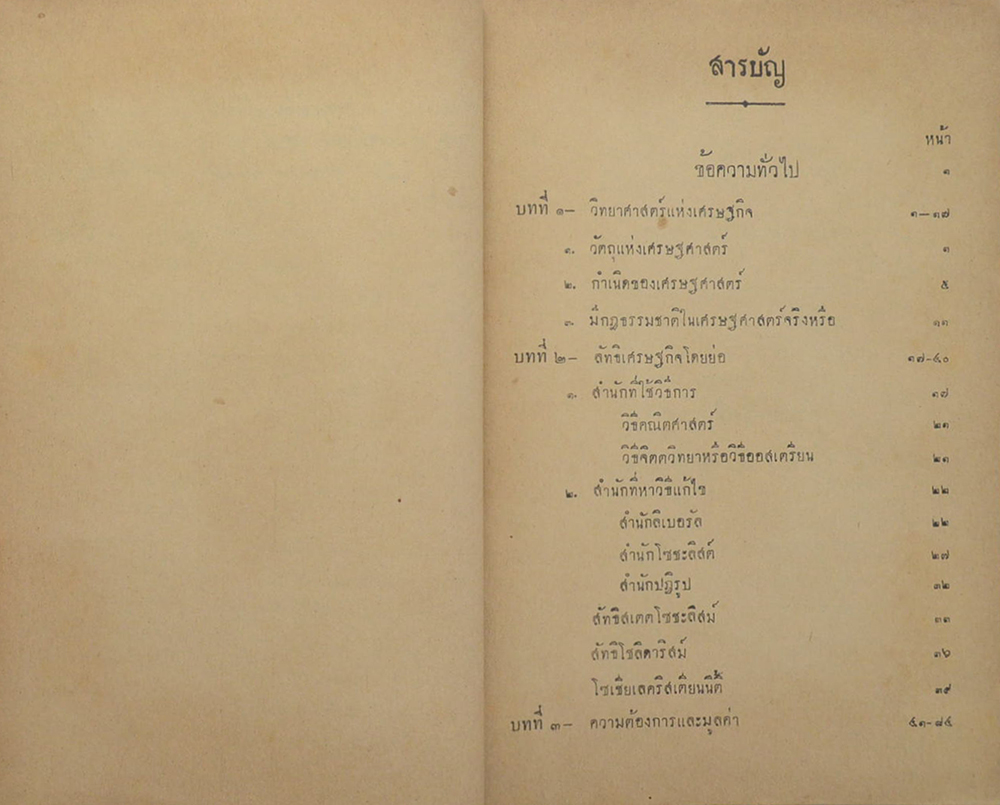 สารบัญ
หน้า
ข้อความทั่วไป ๑
บทที่ ๑— วิทยาศาสตร์แห่งเศรษฐกิจ ๑—๑๗
๑. วัตถุแห่งเศรษฐศาสตร์ ๑
๒. กำเนิดของเศรษฐศาสตร์ ๕
๓. มีกฎธรรมชาติในเศรษฐศาสตร์จริงหรือ ๑๑
บทที่ ๒— ลัทธิเศรษฐกิจโดยย่อ ๑๗-๔๐
๑. สำนักที่ใช้วิธีการ ๑๗
วิธีคณิตศาสตร์ ๒๑
วิธีจิตตวิทยาหรือวิธีออสเตรียน ๒๑
๒. สำนักที่หาวิธีแก้ไข ๒๒
สำนักลิเบอรัล ๒๒
สำนักโซชะลิสต์ ๒๗
สำนักปฏิรูป ๓๒
ลัทธิสเตตโซชะลิสม์ ๓๓
ลัทธิโซลิดาริสม์ ๓๖
โซเชียเลคริสเตียนนิตี้ ๓๙
บทที่ ๓— ความต้องการและมูลค่า ๔๑-๘๔